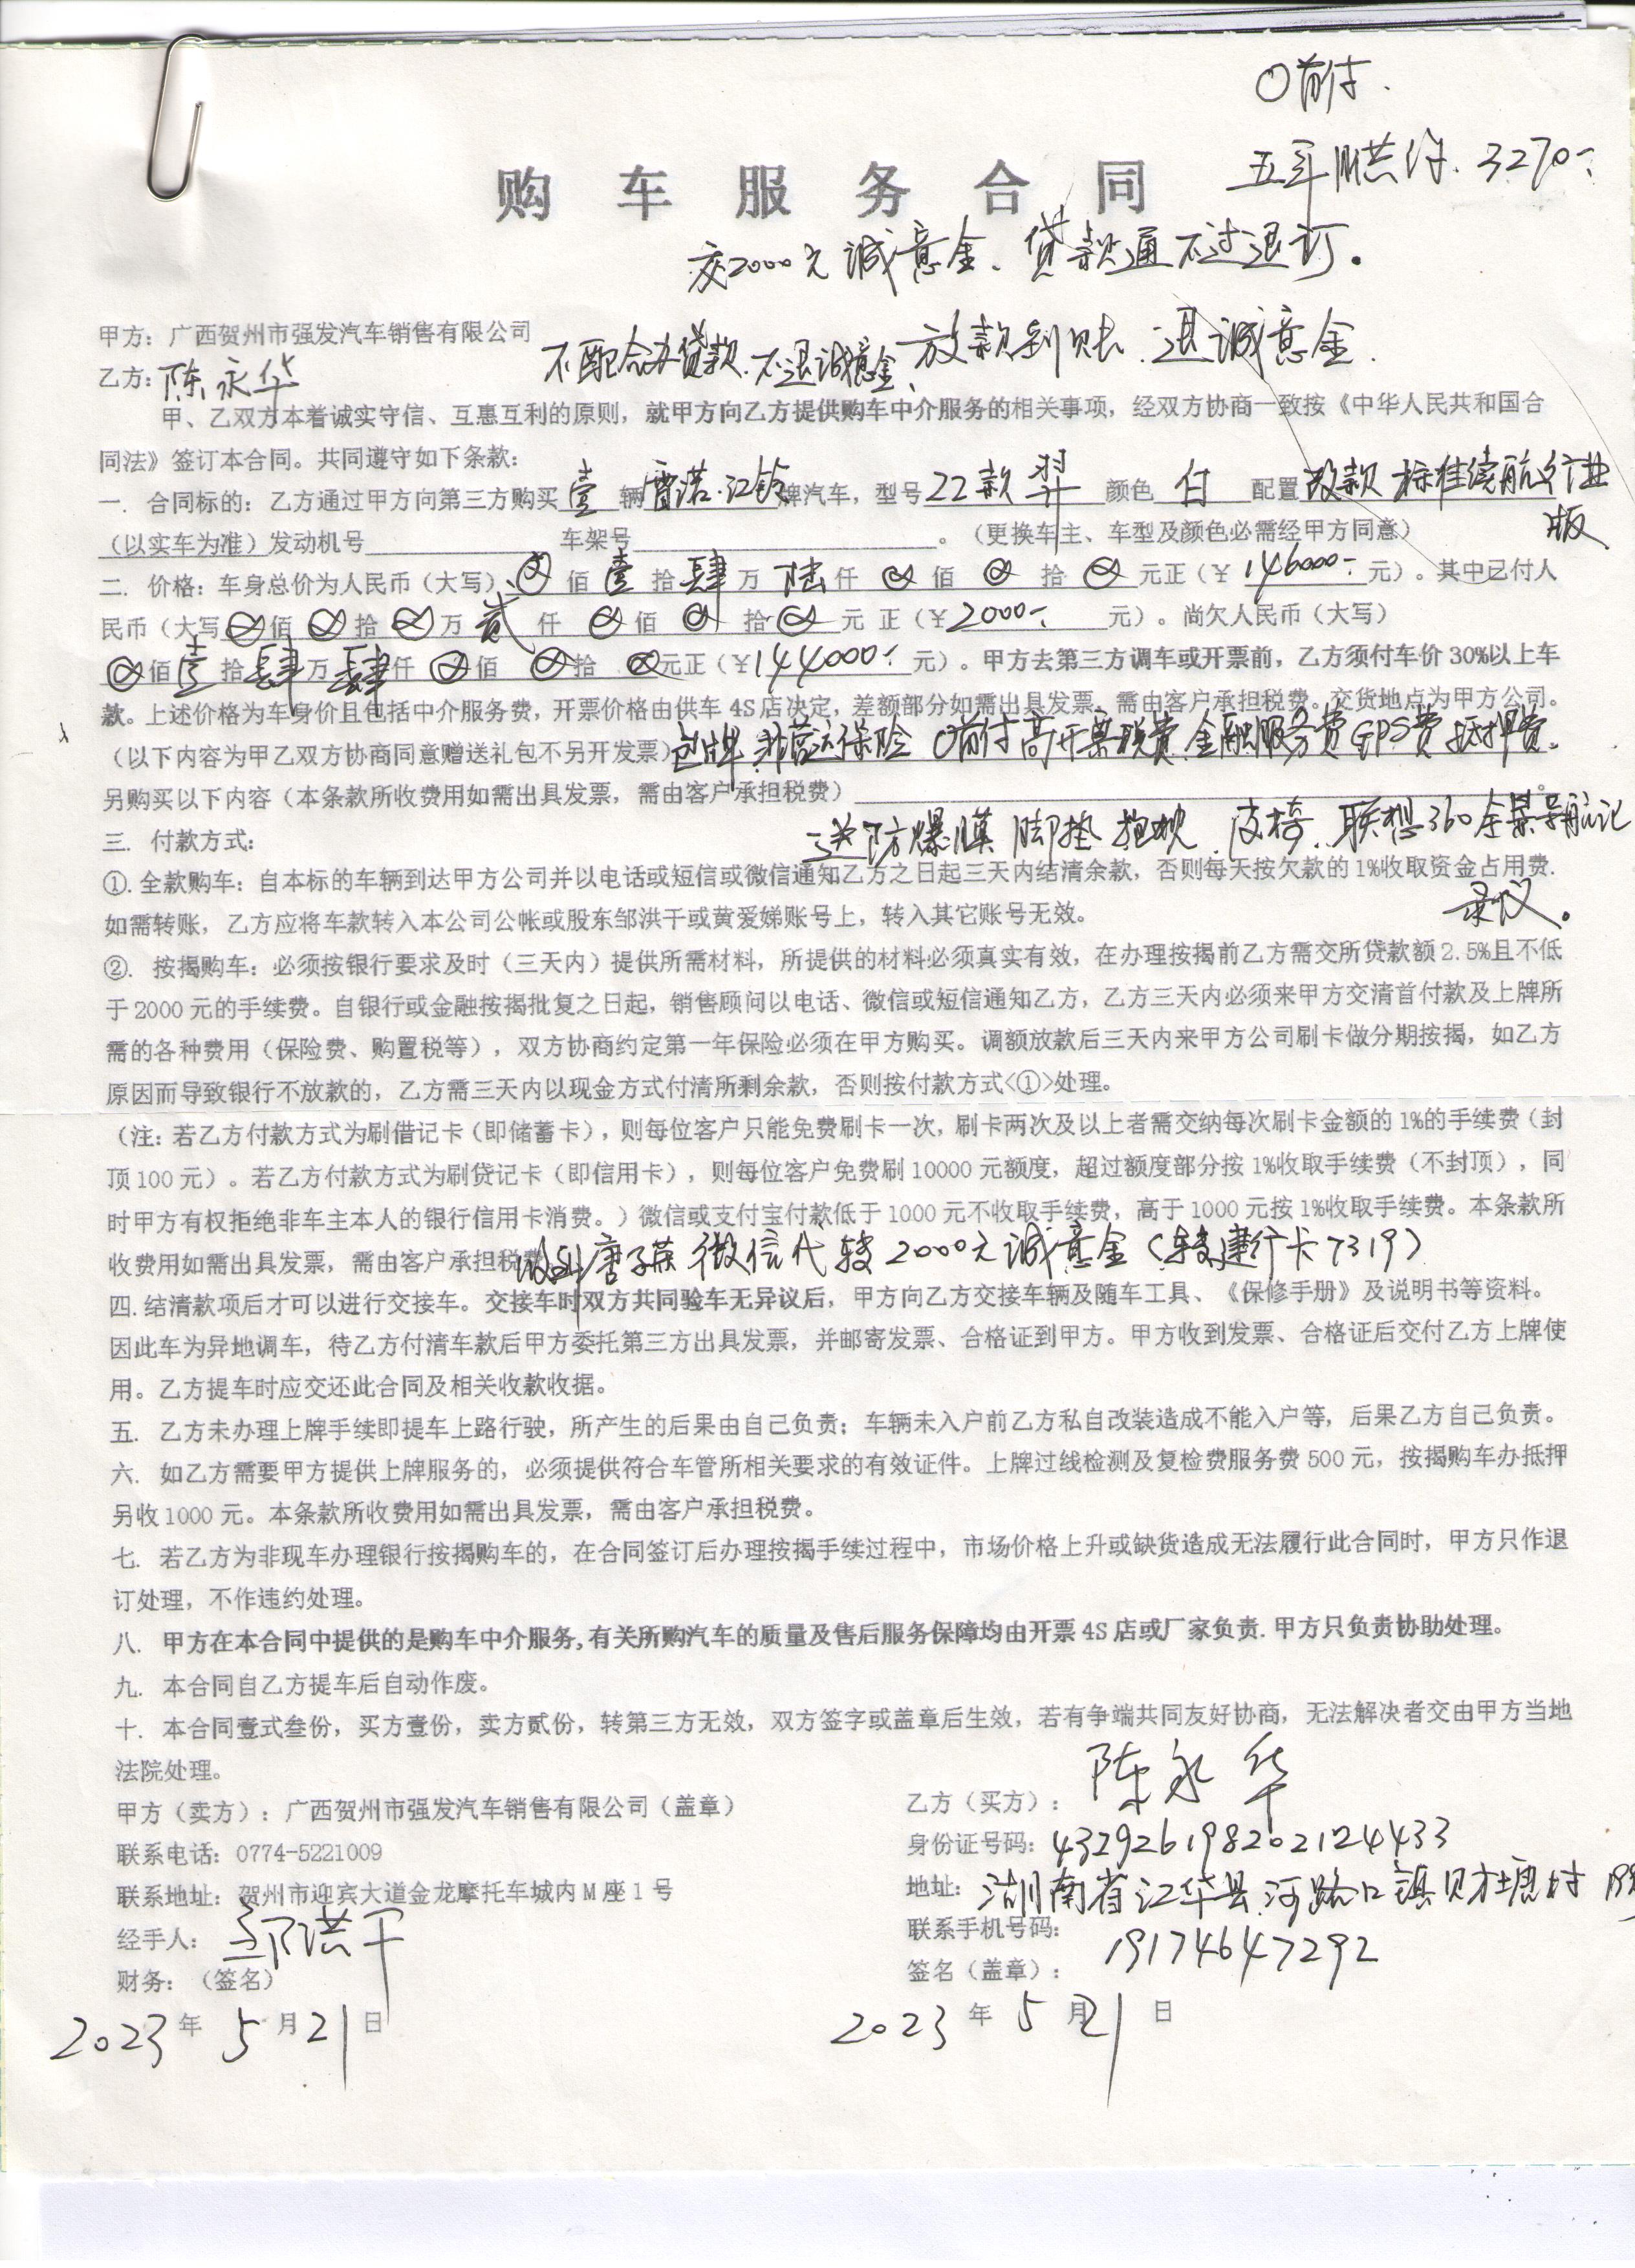 0首付.
五年月供付.3270-
购车服务合同
交2000元诚意金、贷款通不过退订。
甲方：广西贺州市强发汽车销售有限公司
不配合办贷款.不退诚意金、放款到账.退诚意金.
乙方：陈永华
甲、乙双方本着诚实守信、互惠互利的原则，就甲方向乙方提供购车中介服务的相关事项，经双方协商一致按《中华人民共和国合
同法》签订本合同。共同遵守如下条款：
一. 合同标的：乙方通过甲方向第三方购买壹辆雷诺.江铃牌汽车，型号22款羿颜色白配置改款 标准续航行业
版
（以实车为准）发动机号 车架号 。（更换车主、车型及颜色必需经甲方同意）
二. 价格：车身总价为人民币（大写）⊗佰壹拾肆万陆仟⊗佰⊗拾⊗元正（￥146000-元）。其中已付人
民币（大写⊗佰⊗拾⊗万贰仟⊗佰⊗拾⊗元正（￥2000-元）。尚欠人民币（大写）
⊗佰壹拾肆万肆仟⊗佰⊗拾⊗元正（￥144000-元）。甲方去第三方调车或开票前，乙方须付车价30%以上车
款。上述价格为车身价且包括中介服务费，开票价格由供车4S店决定，差额部分如需出具发票，需由客户承担税费。交货地点为甲方公司。
（以下内容为甲乙双方协商同意赠送礼包不另开发票）包牌.非营运保险 0首付高开票税费.金融服务费GPS费 抵押费。
另购买以下内容（本条款所收费用如需出具发票，需由客户承担税费） 。
送防爆膜 脚垫 抱枕.皮椅.联想360全景导航记
录仪。
三. 付款方式：
①.全款购车：自本标的车辆到达甲方公司并以电话或短信或微信通知乙方之日起三天内结清余款，否则每天按欠款的1%收取资金占用费.
如需转账，乙方应将车款转入本公司公帐或股东邹洪干或黄爱娣账号上，转入其它账号无效。
②. 按揭购车：必须按银行要求及时（三天内）提供所需材料，所提供的材料必须真实有效，在办理按揭前乙方需交所贷款额2.5%且不低
于2000元的手续费。自银行或金融按揭批复之日起，销售顾问以电话、微信或短信通知乙方，乙方三天内必须来甲方交清首付款及上牌所
需的各种费用（保险费、购置税等），双方协商约定第一年保险必须在甲方购买。调额放款后三天内来甲方公司刷卡做分期按揭，如乙方
原因而导致银行不放款的，乙方需三天内以现金方式付清所剩余款，否则按付款方式<①>处理。
（注：若乙方付款方式为刷借记卡（即储蓄卡），则每位客户只能免费刷卡一次，刷卡两次及以上者需交纳每次刷卡金额的1%的手续费（封
顶100元）。若乙方付款方式为刷贷记卡（即信用卡），则每位客户免费刷10000元额度，超过额度部分按1%收取手续费（不封顶），同
时甲方有权拒绝非车主本人的银行信用卡消费。）微信或支付宝付款低于1000元不收取手续费，高于1000元按1%收取手续费。本条款所
收费用如需出具发票，需由客户承担税费 微信代转2000元诚意金（转建行卡7319）
四.结清款项后才可以进行交接车。交接车时双方共同验车无异议后，甲方向乙方交接车辆及随车工具、《保修手册》及说明书等资料。
因此车为异地调车，待乙方付清车款后甲方委托第三方出具发票，并邮寄发票、合格证到甲方。甲方收到发票、合格证后交付乙方上牌使
用。乙方提车时应交还此合同及相关收款收据。
五. 乙方未办理上牌手续即提车上路行驶，所产生的后果由自己负责；车辆未入户前乙方私自改装造成不能入户等，后果乙方自己负责。
六. 如乙方需要甲方提供上牌服务的，必须提供符合车管所相关要求的有效证件。上牌过线检测及复检费服务费500元，按揭购车办抵押
另收1000元。本条款所收费用如需出具发票，需由客户承担税费。
七. 若乙方为非现车办理银行按揭购车的，在合同签订后办理按揭手续过程中，市场价格上升或缺货造成无法履行此合同时，甲方只作退
订处理，不作违约处理。
八. 甲方在本合同中提供的是购车中介服务,有关所购汽车的质量及售后服务保障均由开票4S店或厂家负责.甲方只负责协助处理。
九. 本合同自乙方提车后自动作废。
十. 本合同壹式叁份，买方壹份，卖方贰份，转第三方无效，双方签字或盖章后生效，若有争端共同友好协商，无法解决者交由甲方当地
法院处理。
甲方（卖方）：广西贺州市强发汽车销售有限公司（盖章）
乙方（买方）：陈永华
联系电话：0774-5221009
身份证号码：432926198202124433
联系地址：贺州市迎宾大道金龙摩托车城内M座1号
地址：湖南省江华县河路口镇财塘村
经手人：邹洪干
联系手机号码：19174647292
财务：（签名）
签名（盖章）：
2023年5月21日
2023年5月21日